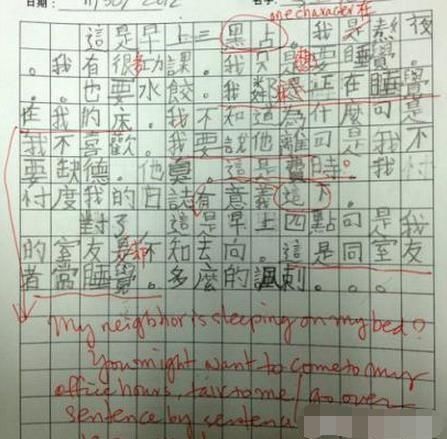 日期: 11/30/2012
one character 在
這是早上三黑占。我是熬夜
。我有很多功課。我只是想要睡覺
。也要水餃。我鄰 正在睡覺
在我的床。我不知道為什麼可是
我不喜歡。我要說他離可是我不
要缺德。他臭。這是費時。我忖
忖度我的日誌有意義這下。
對了 這是早上四點可是我
的室友是卻不知去向。這是同室友
者常睡覺。多麼的諷刺。。。。
My neighbor is sleeping on my bed?
You might want to come to my
office hours, talk to me / go over
sentence by sentence